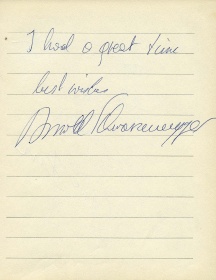 I had a great time
best wishes
Arnold Schwarzenegger